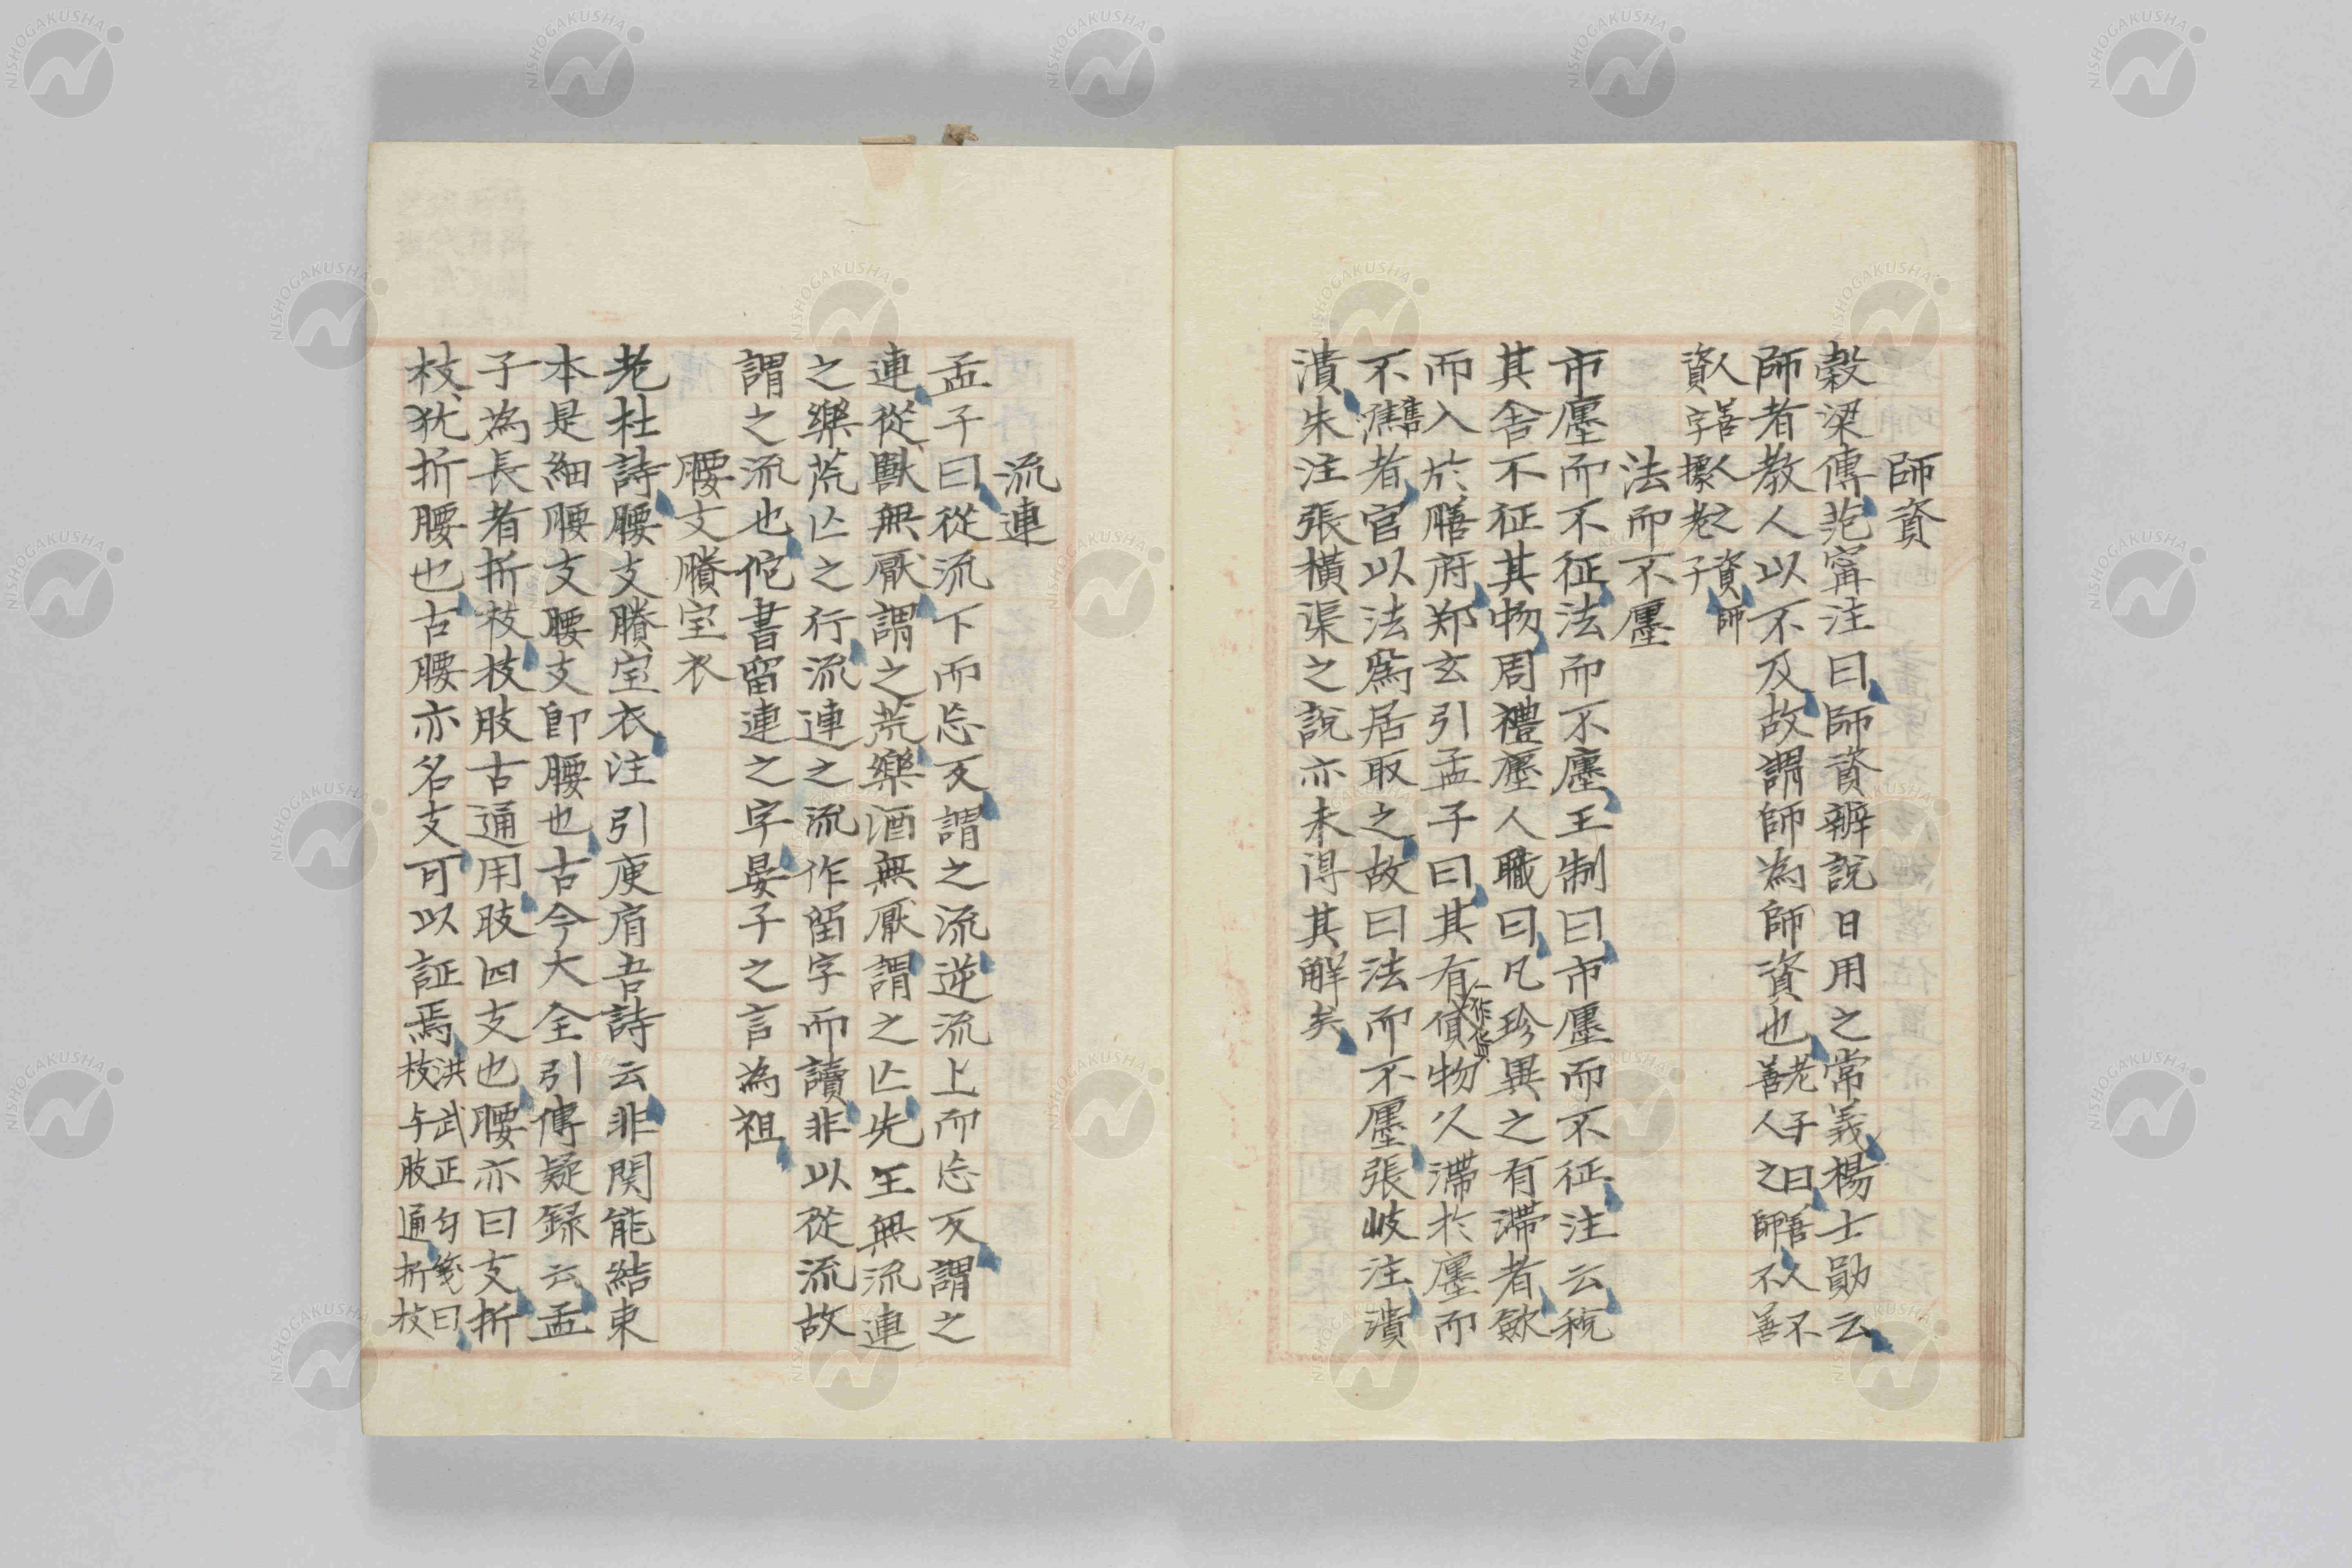 師資
穀梁傳范甯注曰師資辨說日用之常義楊士勛云
師者教人以不及故謂師為師資也老子曰善人不善人之師不善
人善人之資師資字據老子
法而不廛
市廛而不征法而不廛王制曰市廛而不征注云稅
其舍不征其物周禮廛人職曰凡珍異之有滯者斂
而入於膳府郑玄引孟子曰其有貨物久滯於廛而
不售者官以法為居取之故曰法而不廛張岐注濆
濆朱注張橫渠之說亦未得其解矣
流連
孟子曰從流下而忘反謂之流逆流上而忘反謂之
連從獸無厭謂之荒樂酒無厭謂之亡先王無流連
之樂荒亡之行流連之流作留字而讀非以從流故
謂之流也佗書留連之字晏子之言為祖
腰支賸宝衣
老杜詩腰支賸宝衣注引庾肩吾詩云非関能結束
本是細腰支腰支即腰也古今大全引傳疑録云孟
子為長者折枝枝肢古通用肢四支也腰亦曰支折
枝犹折腰也古腰亦名支可以証焉洪武正匀箋曰枝与肢通折枝
NISHOGAKUSHA